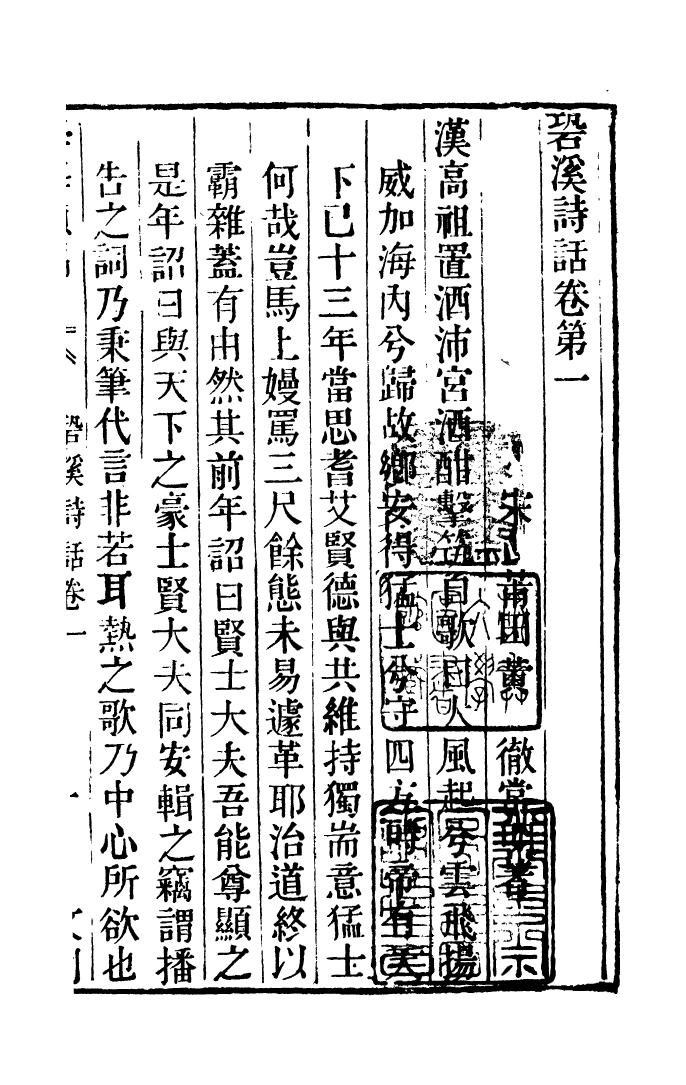 䂬溪詩話卷第一
宋 莆田黃 徹 常明 著
漢高祖置酒沛宮酒酣擊筑自歌曰大風起兮雲飛揚
威加海內兮歸故鄉安得猛士兮守四方時帝有天
下已十三年當思耆艾賢德與共維持獨耑意猛士
何哉豈馬上嫚罵三尺餘態未易遽革耶治道終以
霸雜蓋有由然其前年詔曰賢士大夫吾能尊顯之
是年詔曰與天下之豪士賢大夫同安輯之竊謂播
告之詞乃秉筆代言非若耳熱之歌乃中心所欲也
䂬溪詩話卷一